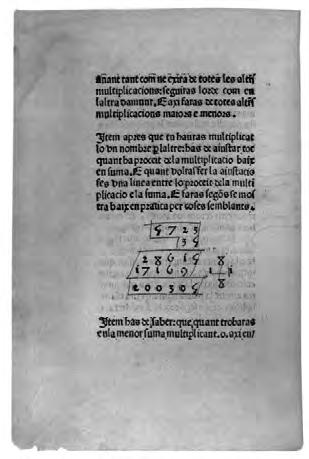 Anant tant com ne exira de totes les altres
multiplicacions: seguiras lorde com en
laltra damunt. E axi faras de totes altres
multiplicacions maiors e menors.
Item apres que tu hauras multiplicat
lo vn nombre per laltre: has de aiustar tot
quant ha proceit dela multiplicacio baix
en suma. E quant volras fer la aiustacio
fes vna linea entre lo proceit dela multi
plicacio e la suma. E faras segons se mos
tra baix en pratica per coses semblants.
5723
35
28615
17169
200305
8
1 1
8
Item has de saber: que quant trobaras
en la menor suma multiplicant .o. axi en